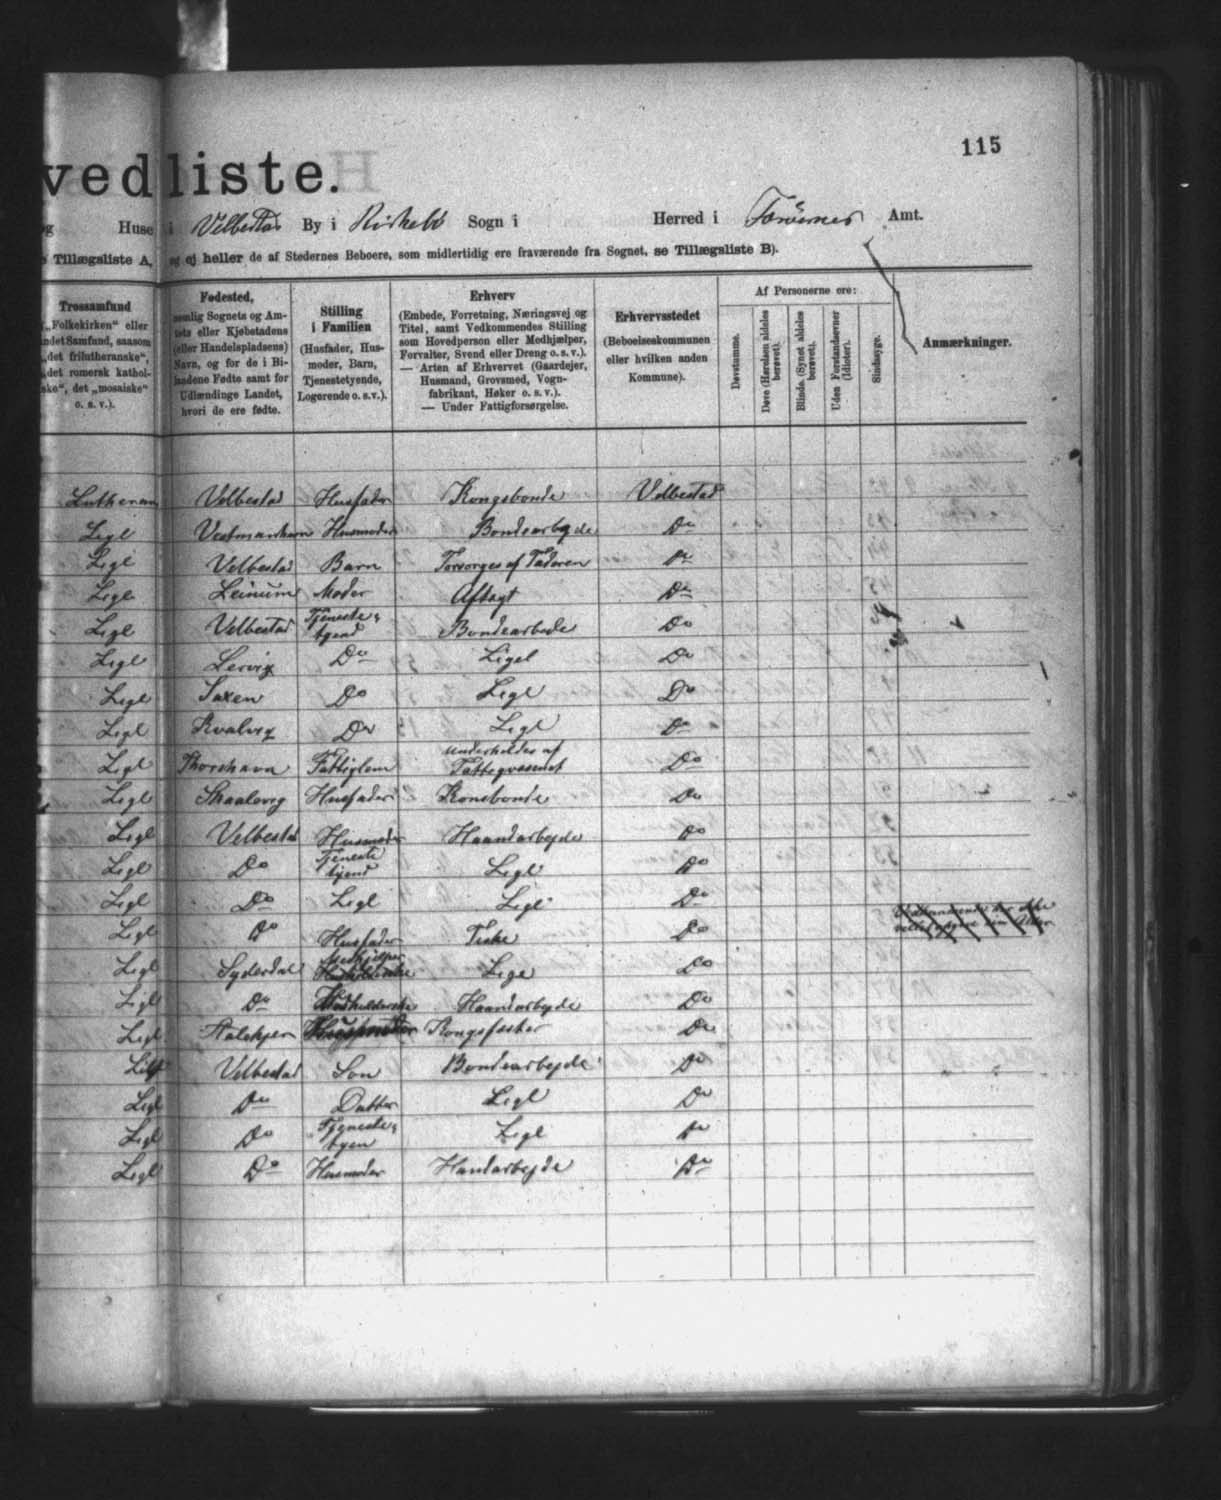 115
vedliste.
og Huse i Velbestad By i Kirkebö Sogn i Herred i Færöernes Amt.
Tillægsliste A, og ej heller de af Stedernes Beboere, som midlertidig ere fraværende fra Sognet, se Tillægsliste B).
Trossamfund
„Folkekirken“ eller
andet Samfund, saasom
„det frilutheranske“,
„det romersk kathol-
ske“, det „mosaiske“
o. s. v.).
Fødested,
nemlig Sognets og Am-
tets eller Kjøbstadens
(eller Handelspladsens)
Navn, og for de i Bi-
landene Fødte samt for
Udlændinge Landet,
hvori de ere fødte.
Stilling
i Familien
(Husfader, Hus-
moder, Barn,
Tjenestetyende,
Logerende o. s. v.).
Erhverv
(Embede, Forretning, Næringsvej og
Titel, samt Vedkommendes Stilling
som Hovedperson eller Medhjælper,
Forvalter, Svend eller Dreng o. s. v.).
— Arten af Erhvervet (Gaardejer,
Husmand, Grovsmed, Vogn-
fabrikant, Høker o. s. v.).
— Under Fattigforsørgelse.
Erhvervsstedet
(Beboelseskommunen
eller hvilken anden
Kommune).
Af Personerne ere:
Døvstumme.
Døve (Hørelsen aldeles
berøvet).
Blinde. (Synet aldeles
berøvet).
Uden Forstandsevner
(Idioter).
Sindssyge.
Anmærkninger.
Lutheran Velbestad Husfader Kongsbonde Velbestad
Ligl Vestmanhavn Husmoder Bondearbejde Do
Lige Velbestad Barn Forsorges af Faderen Do
Lige Leinum Moder Aftægt Do
Ligl Velbestad Tjeneste-
tyend Bondearbede Do
Ligl Lervig Do Ligel Do
Ligl Saxen Do Ligl Do
Ligl Kvalvig Do Ligl Do
Ligl Thorshavn Fattiglem underholdes af
Fattigvæsenet Do
Ligl Skaalevig Husfader Konebonde Do
Ligl Velbestad Husmoder Haandarbejde Do
Ligl Do Tjeneste
tyend Ligl Do
Ligl Do Ligl Ligl Do
Ligl Do Husfader Fiske Do
Ligl Syderdal Lige Do
Ligl Do Husholderske Haandarbejde Do
Ligl Kongsfæster Do
Velbestad Son Bondearbejde Do
Ligl Do Datter Ligl Do
Ligl Do Tjeneste-
tyen Ligl Do
Ligl Do Husmoder Handarbejde Do